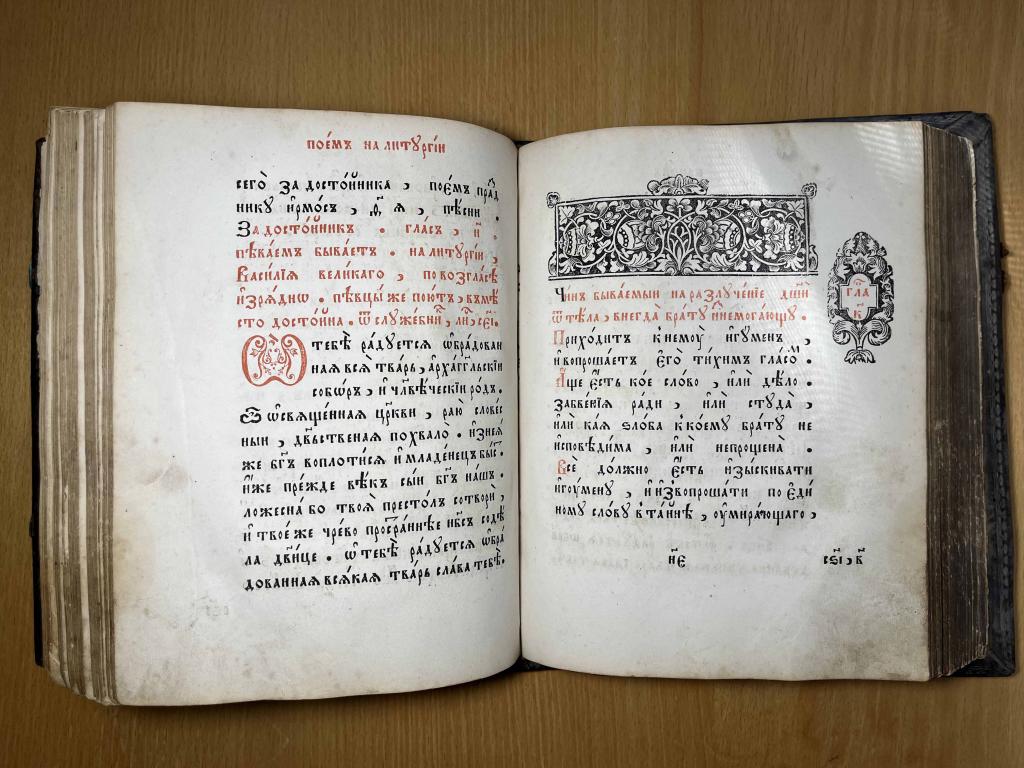 поє́мъ на литꙋргі́и
сего̀ за досто́йника , пое́мъ пра́д
никꙋ і҆рмо́съ , ѳ҃ , ѧ , пѣ́сни .
За досто́йникъ . гла́съ , и҃ .
пѣва́ем быва́етъ . на литꙋргі́и ,
Васи́лїѧ вели́кагѡ , по возгла́сѣ
и҆зрѧ́днѡ . пѣвцы́ же пою́тъ , въмѣ́
сто досто́йна .
Ѡ тебѣ̀ ра́дꙋетсѧ ѡ҆бра́дован
наѧ всѧ̀ тва́рь , а҆рха́гг҃льскїи
собо́ръ , и҆ чл҃вѣ́ческїи ро́дъ .
Ѡ҆свѧще́ннаѧ цр҃кви , раю̀ слове́с
ныи , дв҃ьственаѧ похвало̀ . и҆з̾неѧ́
же бг҃ъ воплоти́сѧ и҆ младе́нецъ бы́с .
и҆́же пре́жде вѣ́къ сы́и бг҃ъ на́шъ .
ложесна́ бо твоѧ̀ престо́лъ сотворѝ ,
и҆ твое́ же чре́во простра́ннѣе нб҃съ содѣ́
ла дв҃ице . ѡ҆ тебѣ̀ ра́дꙋетсѧ ѡ҆бра́
дованнаѧ всѧ́каѧ тва́рь сла́ва тебѣ̀ .
Чи́нъ быва́емыи на разлꙋче́нїе дш҃и
ѿ тѣ́ла , внегда̀ бра́тꙋ и҆знемога́ющꙋ .
Прихо́дитъ к немꙋ̀ и҆гꙋ́менъ ,
и҆ вопроша́етъ є҆го̀ ти́химъ гла́сом .
А҆́ще є҆́сть ко́е сло́во , и҆лѝ дѣ́ло .
забве́нїѧ ра́ди , и҆лѝ стꙋда̀ ,
и҆лѝ ка́ѧ ѕло́ба к ко́емꙋ бра́тꙋ не
и҆сповѣ́дима , и҆лѝ непроще́на .
Всѐ до́лжно є҆́сть и҆зы́скивати
и҆гꙋ́менꙋ , и҆ и҆звопроша́ти по є҆ди́
номꙋ сло́вꙋ в та́йнѣ , ᲂу҆мира́ющаго ,
гла
к҃